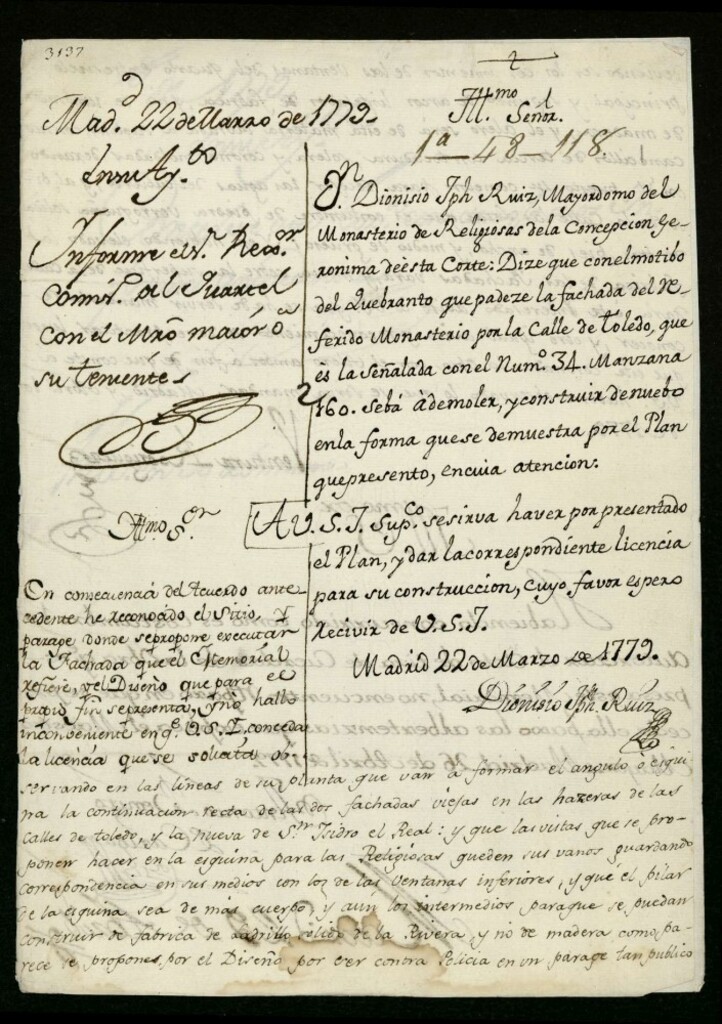 3137
Mad.d 22 de Marzo de 1779.
En su Ay.to
Informe el S.r Rexor.
Comis.o del Quartel
con el Mro maior ó
su teniente
Yll.mo Señor.
1a_48_118.
D.n Dionisio Jph Ruiz, Mayordomo del
Monasterio de Religiosas dela Concepcion Ge-
ronima deèsta Corte: Dize que conelmotibo
del Quebranto que padeze la fachada del Re-
ferido Monasterio por la Calle de Toledo, que
ès la Señalada con el Num.o 34. Manzana
160. sebá àdemoler, y construir denuebo
enla forma que se demuestra por el Plan
que presento, en cuia atencion:
A V. S. I. Sup.co se sirva haver por presentado
el Plan, y dar la correspondiente licencia
para su construccion, cuyo favor espero
Recivir de V. S. I.
Madrid 22 de Marzo de 1779.
Dionisio Jph. Ruiz
Yllmo S.or
En consequencia del Acuerdo ante-
cedente he reconocido el Sitio, y
parage donde se propone executar
la Fachada que el Memorial
refiere, y el Diseño que para el
propio fin se presenta, y no hallo
inconveniente en q.e V. S. I. conceda
la licencia que se solicita ob-
servando en las lineas de su planta que van a formar el angulo ó esqui
na la continuacion recta de las dos fachadas viejas en las hazeras de las
calles de toledo, y la nueva de S.n Isidro el Real: y que las vistas que se pro-
ponen hacer en la esquina para las Religiosas queden sus vanos guardando
correspondencia en sus medios con los de las ventanas inferiores, y que el pilar
de la esquina sea de más cuerpo, y aun los intermedios paraque se puedan
construir de fabrica de ladrillo de la Rivera, y no de madera como pa-
rece se propone por el Diseño por ser contra Policia en un parage tan publico